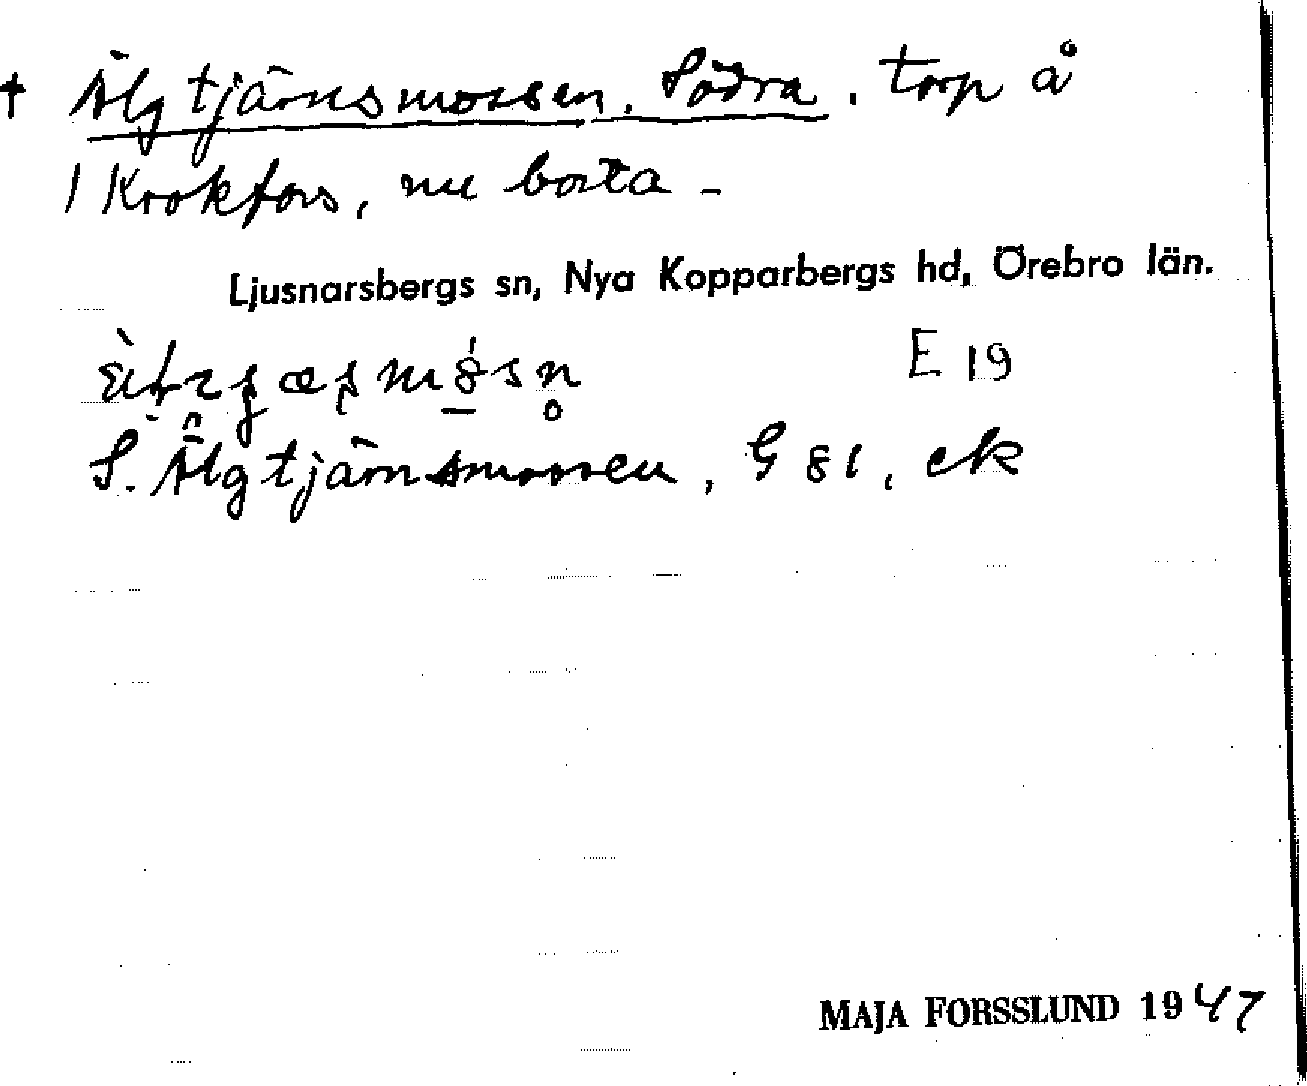 † Älgtjärnsmossen, Södra, torp å
1 Krokfors, nu borta –
Ljusnarsbergs sn, Nya Kopparbergs hd, Örebro län.
E 19
S. Älgtjärnsmossen, G 81, ek
MAJA FORSSLUND 1947